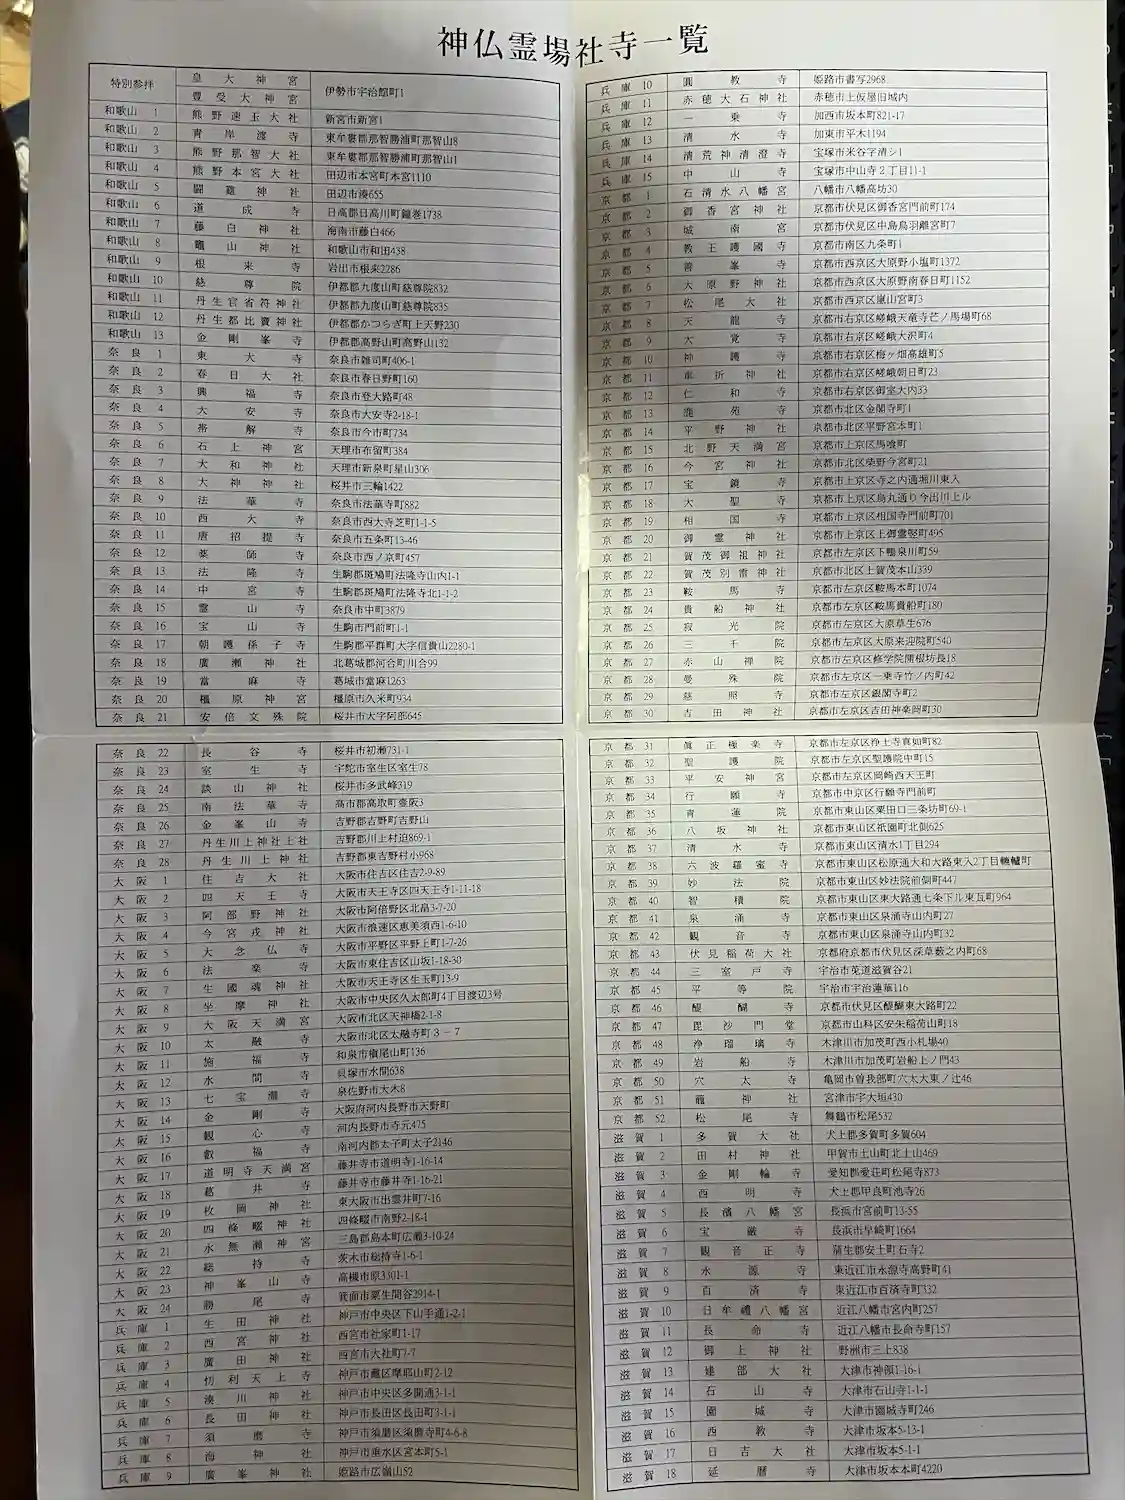 神仏霊場社寺一覧
特別参拝 皇大神宮 伊勢市宇治館町1
豊受大神宮
和歌山 1 熊野速玉大社 新宮市新宮1
和歌山 2 青岸渡寺 東牟婁郡那智勝浦町那智山8
和歌山 3 熊野那智大社 東牟婁郡那智勝浦町那智山1
和歌山 4 熊野本宮大社 田辺市本宮町本宮1110
和歌山 5 闘雞神社 田辺市湊655
和歌山 6 道成寺 日高郡日高川町鐘巻1738
和歌山 7 藤白神社 海南市藤白466
和歌山 8 竈山神社 和歌山市和田438
和歌山 9 根来寺 岩出市根来2286
和歌山 10 慈尊院 伊都郡九度山町慈尊院832
和歌山 11 丹生官省符神社 伊都郡九度山町慈尊院835
和歌山 12 丹生都比賣神社 伊都郡かつらぎ町上天野230
和歌山 13 金剛峯寺 伊都郡高野山町高野山132
奈良 1 東大寺 奈良市雑司町406-1
奈良 2 春日大社 奈良市春日野町160
奈良 3 興福寺 奈良市登大路町48
奈良 4 大安寺 奈良市大安寺2-18-1
奈良 5 帯解寺 奈良市今市町734
奈良 6 石上神宮 天理市布留町384
奈良 7 大和神社 天理市新泉町星山306
奈良 8 大神神社 桜井市三輪1422
奈良 9 法華寺 奈良市法華寺町882
奈良 10 西大寺 奈良市西大寺芝町1-1-5
奈良 11 唐招提寺 奈良市五条町13-46
奈良 12 薬師寺 奈良市西ノ京町457
奈良 13 法隆寺 生駒郡斑鳩町法隆寺山内1-1
奈良 14 中宮寺 生駒郡斑鳩町法隆寺北1-1-2
奈良 15 霊山寺 奈良市中町3879
奈良 16 宝山寺 生駒市門前町1-1
奈良 17 朝護孫子寺 生駒郡平群町大字信貴山2280-1
奈良 18 廣瀬神社 北葛城郡河合町川合99
奈良 19 當麻寺 葛城市當麻1263
奈良 20 橿原神宮 橿原市久米町934
奈良 21 安倍文殊院 桜井市大字阿部645
奈良 22 長谷寺 桜井市初瀬731-1
奈良 23 室生寺 宇陀市室生区室生78
奈良 24 談山神社 桜井市多武峰319
奈良 25 南法華寺 高市郡高取町壷阪3
奈良 26 金峯山寺 吉野郡吉野町吉野山
奈良 27 丹生川上神社上社 吉野郡川上村迫869-1
奈良 28 丹生川上神社 吉野郡東吉野村小968
大阪 1 住吉大社 大阪市住吉区住吉2-9-89
大阪 2 四天王寺 大阪市天王寺区四天王寺1-11-18
大阪 3 阿部野神社 大阪市阿倍野区北畠3-7-20
大阪 4 今宮戎神社 大阪市浪速区恵美須西1-6-10
大阪 5 大念仏寺 大阪市平野区平野上町1-7-26
大阪 6 法楽寺 大阪市東住吉区山坂1-18-30
大阪 7 生國魂神社 大阪市天王寺区生玉町13-9
大阪 8 坐摩神社 大阪市中央区久太郎町4丁目渡辺3号
大阪 9 大阪天満宮 大阪市北区天神橋2-1-8
大阪 10 太融寺 大阪市北区太融寺町3-7
大阪 11 施福寺 和泉市槇尾山町136
大阪 12 水間寺 貝塚市水間638
大阪 13 七宝瀧寺 泉佐野市大木8
大阪 14 金剛寺 大阪府河内長野市天野町
大阪 15 観心寺 河内長野市寺元475
大阪 16 叡福寺 南河内郡太子町太子2146
大阪 17 道明寺天満宮 藤井寺市道明寺1-16-14
大阪 18 葛井寺 藤井寺市藤井寺1-16-21
大阪 19 枚岡神社 東大阪市出雲井町7-16
大阪 20 四條畷神社 四條畷市南野2-18-1
大阪 21 水無瀬神宮 三島郡島本町広瀬3-10-24
大阪 22 総持寺 茨木市総持寺1-6-1
大阪 23 神峯山寺 高槻市原3301-1
大阪 24 勝尾寺 箕面市粟生間谷2914-1
兵庫 1 生田神社 神戸市中央区下山手通1-2-1
兵庫 2 西宮神社 西宮市社家町1-17
兵庫 3 廣田神社 西宮市大社町7-7
兵庫 4 忉利天上寺 神戸市灘区摩耶山町2-12
兵庫 5 湊川神社 神戸市中央区多聞通3-1-1
兵庫 6 長田神社 神戸市長田区長田町3-1-1
兵庫 7 須磨寺 神戸市須磨区須磨寺町4-6-8
兵庫 8 海神社 神戸市垂水区宮本町5-1
兵庫 9 廣峯神社 姫路市広嶺山52
兵庫 10 圓教寺 姫路市書写2968
兵庫 11 赤穂大石神社 赤穂市上仮屋旧城内
兵庫 12 一乗寺 加西市坂本町821-17
兵庫 13 清水寺 加東市平木1194
兵庫 14 清荒神清澄寺 宝塚市米谷字清シ1
兵庫 15 中山寺 宝塚市中山寺2丁目11-1
京都 1 石清水八幡宮 八幡市八幡高坊30
京都 2 御香宮神社 京都市伏見区御香宮門前町174
京都 3 城南宮 京都市伏見区中島鳥羽離宮町7
京都 4 教王護國寺 京都市南区九条町1
京都 5 善峯寺 京都市西京区大原野小塩町1372
京都 6 大原野神社 京都市西京区大原野南春日町1152
京都 7 松尾大社 京都市西京区嵐山宮町3
京都 8 天龍寺 京都市右京区嵯峨天龍寺芒ノ馬場町68
京都 9 大覚寺 京都市右京区嵯峨大沢町4
京都 10 神護寺 京都市右京区梅ヶ畑高雄町5
京都 11 車折神社 京都市右京区嵯峨朝日町23
京都 12 仁和寺 京都市右京区御室大内33
京都 13 鹿苑寺 京都市北区金閣寺町1
京都 14 平野神社 京都市北区平野宮本町1
京都 15 北野天満宮 京都市上京区馬喰町
京都 16 今宮神社 京都市北区紫野今宮町21
京都 17 宝鏡寺 京都市上京区寺之内通堀川東入
京都 18 大聖寺 京都市上京区烏丸通り今出川上ル
京都 19 相国寺 京都市上京区相国寺門前町701
京都 20 御霊神社 京都市上京区上御霊竪町495
京都 21 賀茂御祖神社 京都市左京区下鴨泉川町59
京都 22 賀茂別雷神社 京都市北区上賀茂本山339
京都 23 鞍馬寺 京都市左京区鞍馬本町1074
京都 24 貴船神社 京都市左京区鞍馬貴船町180
京都 25 寂光院 京都市左京区大原草生676
京都 26 三千院 京都市左京区大原来迎院町540
京都 27 赤山禅院 京都市左京区修学院開根坊長18
京都 28 曼殊院 京都市左京区一乗寺竹ノ内町42
京都 29 慈照寺 京都市左京区銀閣寺町2
京都 30 吉田神社 京都市左京区吉田神楽岡町30
京都 31 眞正極楽寺 京都市左京区浄土寺真如町82
京都 32 聖護院 京都市左京区聖護院中町15
京都 33 平安神宮 京都市左京区岡崎西天王町
京都 34 行願寺 京都市中京区行願寺門前町
京都 35 青蓮院 京都市東山区粟田口三条坊町69-1
京都 36 八坂神社 京都市東山区祇園町北側625
京都 37 清水寺 京都市東山区清水1丁目294
京都 38 六波羅蜜寺 京都市東山区松原通大和大路東入2丁目轆轤町
京都 39 妙法院 京都市東山区妙法院前側町447
京都 40 智積院 京都市東山区東大路通七条下ル東瓦町964
京都 41 泉涌寺 京都市東山区泉涌寺山内町27
京都 42 観音寺 京都市東山区泉涌寺山内町32
京都 43 伏見稲荷大社 京都府京都市伏見区深草薮之内町68
京都 44 三室戸寺 宇治市莵道滋賀谷21
京都 45 平等院 宇治市宇治蓮華116
京都 46 醍醐寺 京都市伏見区醍醐東大路町22
京都 47 毘沙門堂 京都市山科区安朱稲荷山町18
京都 48 浄瑠璃寺 木津川市加茂町西小札場40
京都 49 岩船寺 木津川市加茂町岩船上ノ門43
京都 50 穴太寺 亀岡市曽我部町穴太東ノ辻46
京都 51 籠神社 宮津市字大垣430
京都 52 松尾寺 舞鶴市松尾532
滋賀 1 多賀大社 犬上郡多賀町多賀604
滋賀 2 田村神社 甲賀市土山町北土山469
滋賀 3 金剛輪寺 愛知郡愛荘町松尾寺873
滋賀 4 西明寺 犬上郡甲良町池寺26
滋賀 5 長濱八幡宮 長浜市宮前町13-55
滋賀 6 宝厳寺 長浜市早崎町1664
滋賀 7 観音正寺 蒲生郡安土町石寺2
滋賀 8 永源寺 東近江市永源寺高野町41
滋賀 9 百済寺 東近江市百済寺町332
滋賀 10 日牟禮八幡宮 近江八幡市宮内町257
滋賀 11 長命寺 近江八幡市長命寺町157
滋賀 12 御上神社 野洲市三上838
滋賀 13 建部大社 大津市神領1-16-1
滋賀 14 石山寺 大津市石山寺1-1-1
滋賀 15 園城寺 大津市園城寺町246
滋賀 16 西教寺 大津市坂本5-13-1
滋賀 17 日吉大社 大津市坂本5-1-1
滋賀 18 延暦寺 大津市坂本本町4220